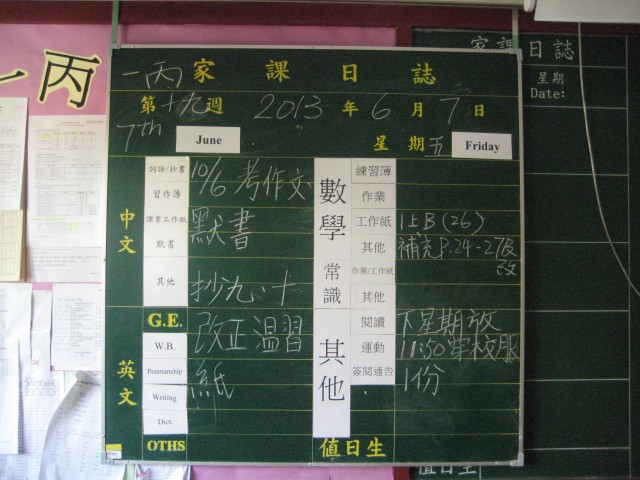 一丙
一丙 家課日誌
第十九週 2013年6月7日
7th June 星期五 Friday
中文
詞語/抄書
習作簿
10/6 考作文
課業工作紙
默書
默書
其他
抄九、十
英文
G.E.
改正溫習
W.B.
Penmanship
紙
Writing
Dict.
OTHS
數學
練習簿
作業
工作紙
1上B(26)
其他
補充P.24-27及
改
常識
作業/工作紙
其他
其他
閱讀
下星期放
運動
11:50穿校服
簽閱通告
1份
值日生
家課日誌
星期
Date:
值日生